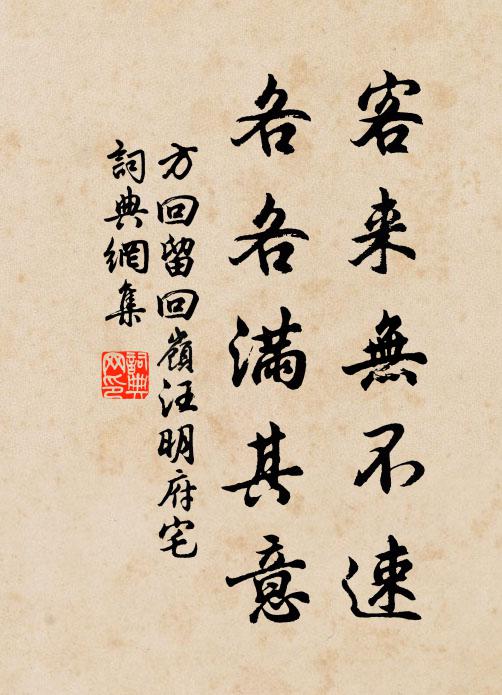 客来無不速
各各滿其意
方回留回嶺汪明府宅
詞典網集
詞典网印